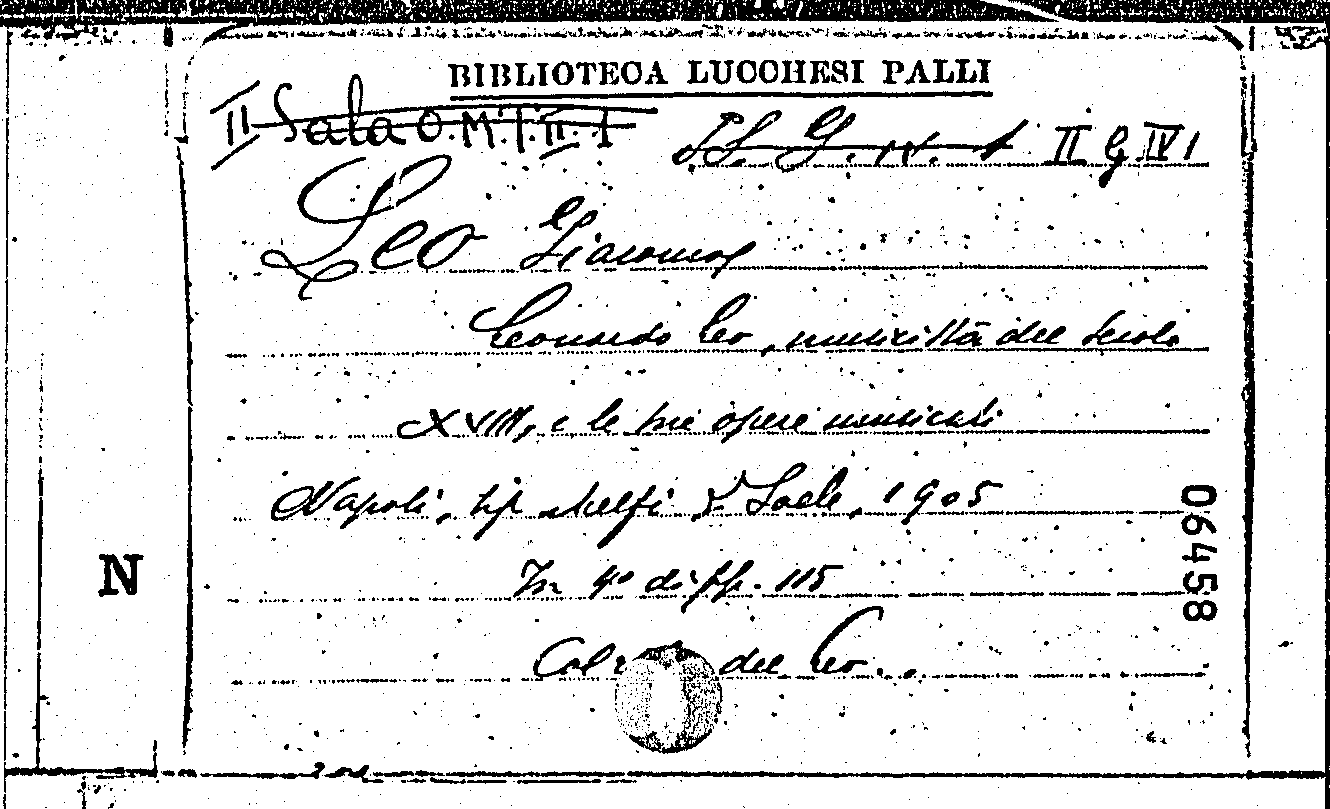 BIBLIOTECA LUCCHESI PALLI
II Sala O.M.I.II.1
II G IV 1
Leo Giacomo
Leonardo Leo, musicista del secolo
XVIII, e le sue opere musicali
Napoli, tip Melfi & Joele, 1905
In 4° di pp. 115
Col del Leo.
N
06458